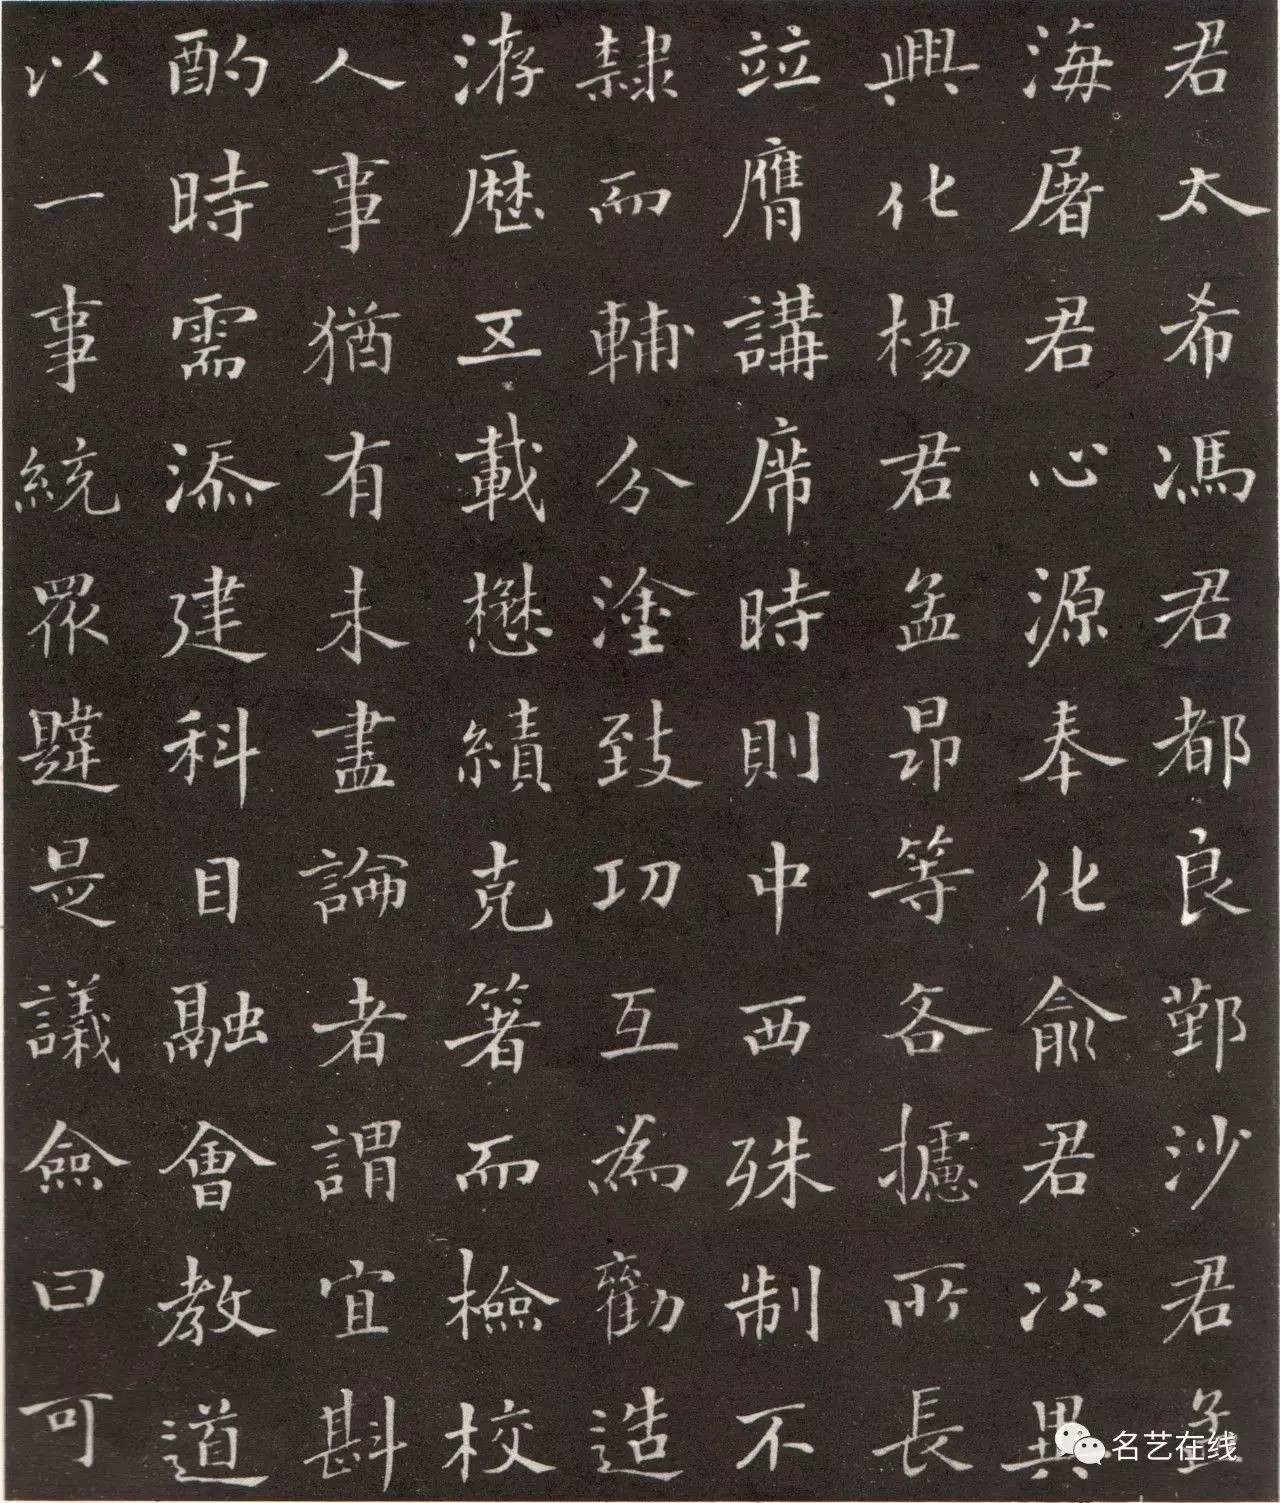 君太希馮君都良鄞沙君孟
海屠君心源奉化俞君次異
興化楊君孟昂等各攄所長
竝膺講席時則中西殊制不
隸而輔分塗致功互為勸造
洊歷五載懋績克箸而檢校
人事猶有未盡論者謂宜斟
酌時需添建科目融會教道
以一事統眾韙是議僉曰可
名艺在线